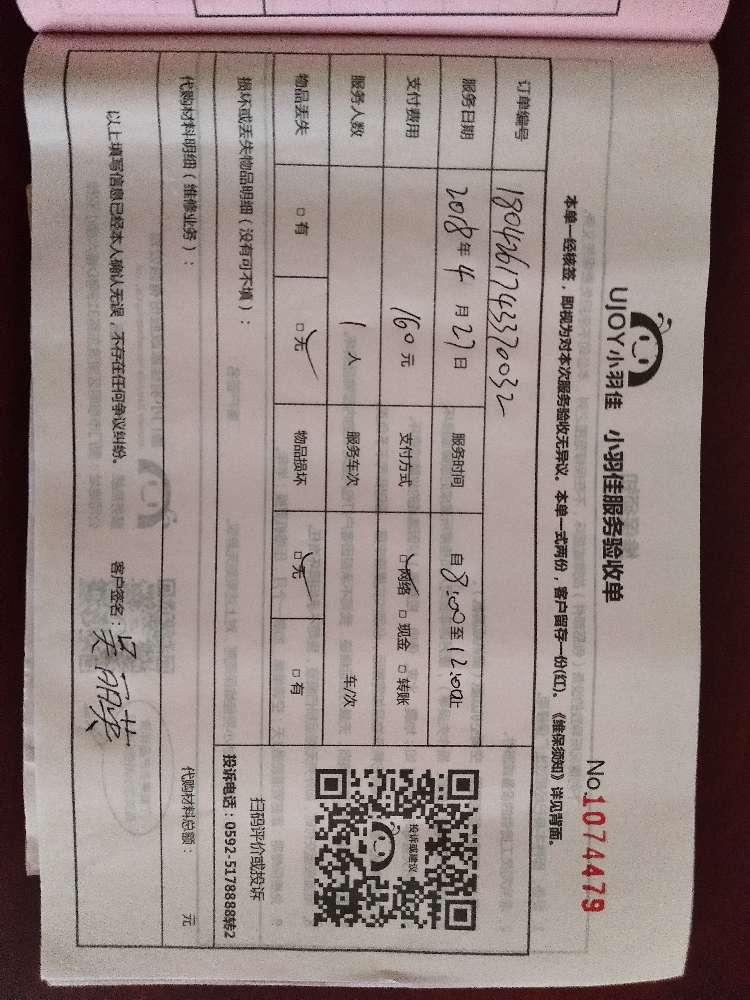 UJOY小羽佳 小羽佳服务验收单
No.1074479
本单一经核签，即视为对本次服务验收无异议。本单一式两份，客户留存一份(红)。《维保须知》详见背面。
订单编号 1804261743370032
服务日期 2018年4月27日 服务时间 自8:00至12:00止
支付费用 160元 支付方式 网络 现金 转账
服务人数 1人 服务车次 车/次
物品丢失 有 无 物品损坏 无 有
投诉或建议
扫码评价或投诉
投诉电话：0592-5178888转2
损坏或丢失物品明细（没有可不填）：
代购材料明细（维修业务）： 代购材料总额： 元
以上填写信息已经本人确认无误，不存在任何争议纠纷。 客户签名：